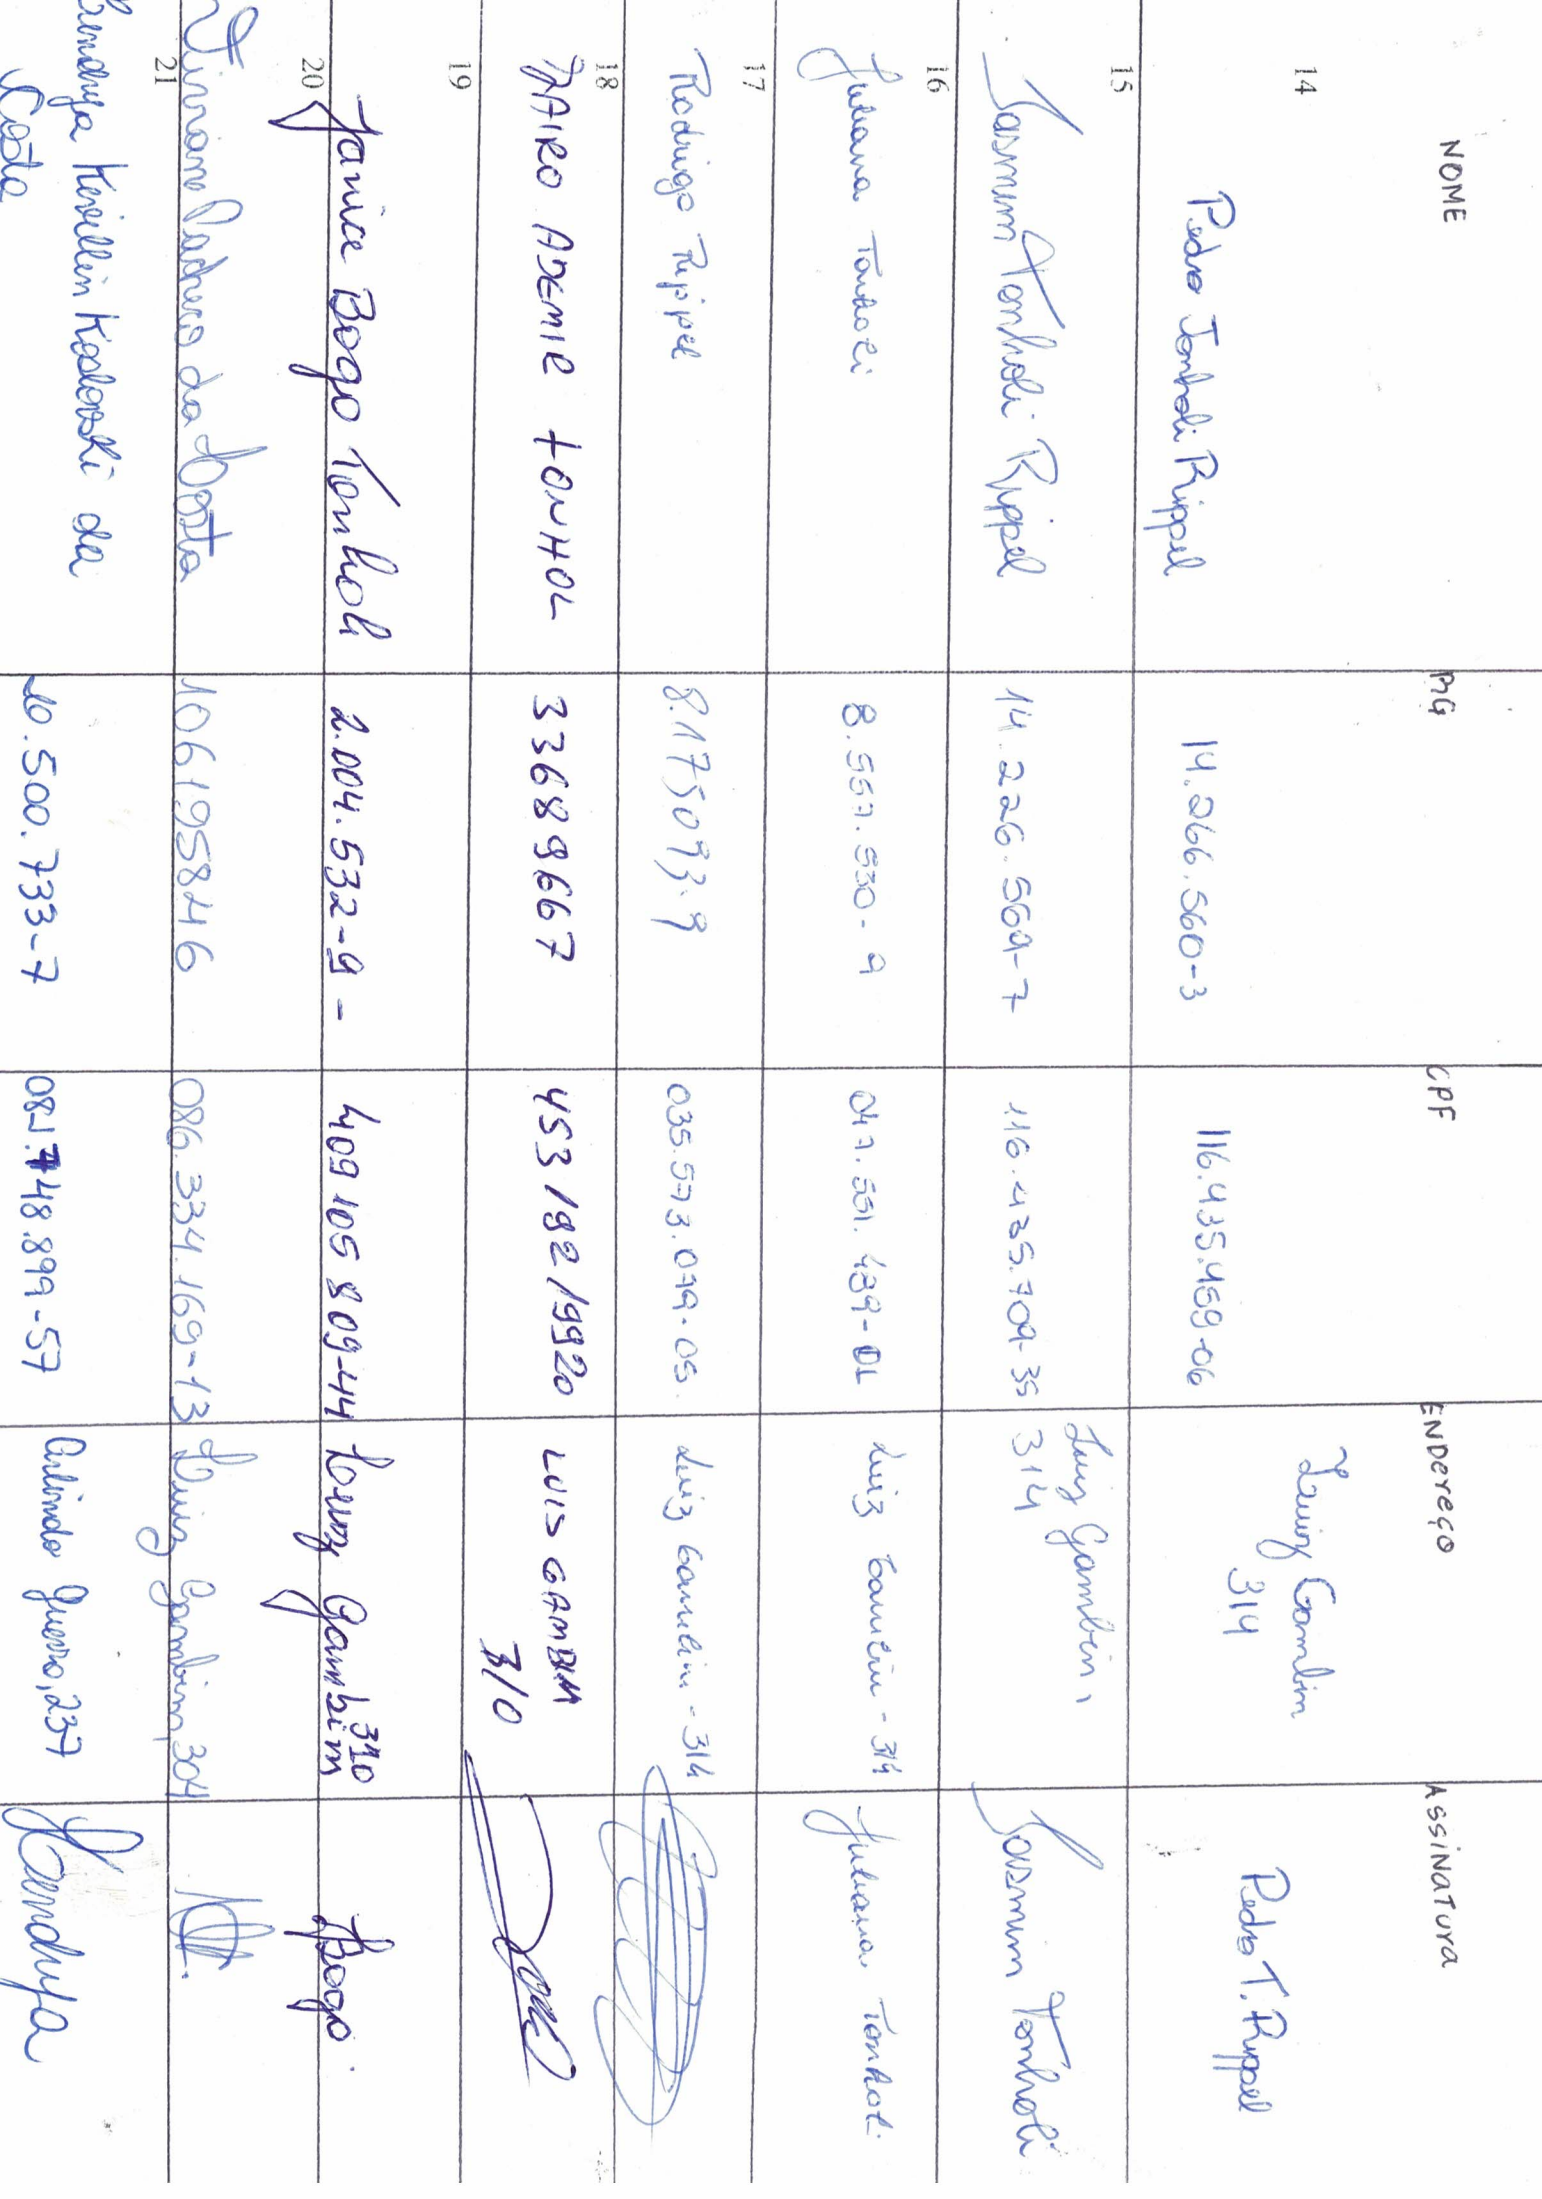 NOME RG CPF ENDEREÇO ASSINATURA
14
Pedro Tonholi Rippel 14.266.560-3 116.435.459-06 Luiz Gambim 314 Pedro T. Rippel
15
Iasmim Tonholi Rippel 14.226.569-7 116.435.709-35 Luiz Gambin, 314 Iasmim Tonholi
16
Juliana Tonholi 8.557.530-9 047.551.489-01 Luiz Gambin - 314 Juliana Tonholi
17
Rodrigo Rippel 8.175093-9 035.573.079-05. Luiz Gambin - 314
18
JAIRO ADEMIR TONHOL 33689667 453 192 19920 LUIS GAMBIM 310
19
Janice Bogo Tonholi 2.004.532-9 - 409 105 809-44 Louiz Gambim 310 JBogo.
20
Viviane Pacheco da Costa 106195846 086.334.169-13 Luiz Gambim, 304
21
Kendrya Keirillin Koslovski da
Costa 10.500.733-7 082.748.899-57 Arlindo Guerro, 237 Kendrya